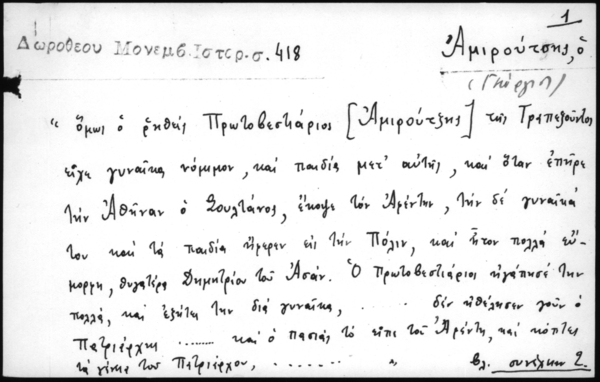 1
Δωροθεου Μονεμβ. Ιστορ. σ. 418
Ἀμιρούτσης, ὁ
(Γεώργιος)
" ὅμως ὁ ῥηθείς Πρωτοβεστιάριος [Ἀμιρούτζης] τῆς Τραπεζοῦντος
εἶχε γυναῖκα νόμιμον, καί παιδία μετ' αὐτῆς, καί ὅταν ἐπῆρε
τήν Ἀθῆναν ὁ Σουλτάνος, ἔκοψε τόν Ἀφέντην, τήν δέ γυναῖκά
του καί τά παιδία ἤφερεν εἰς τήν Πόλιν, καί ἦτον πολλά εὔ-
μορφη, θυγατέρα Δημητρίου τοῦ Ἀσάν. Ὁ Πρωτοβεστιάριος ἠγάπησέ την
πολλά, καί ἐζήτει την διά γυναῖκα, ..... δέν ἠθέλησεν γοῦν ὁ
Πατριάρχης ........ καί ὁ πασιάς τό εἶπε τοῦ Ἀφέντη, καί κόπτει
τά γένεια τοῦ Πατριάρχου, ........ " Βλ. συνέχειαν 2.